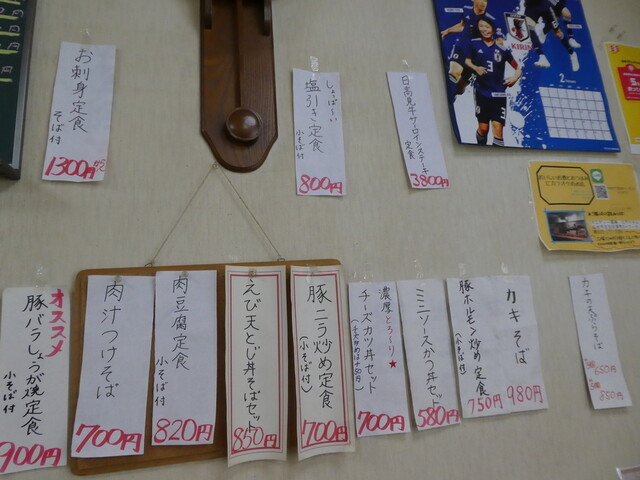 お刺身定食
そば付
1300円から
しょぱ～い
塩引き定食
小そば付
800円
日高見牛サーロインステーキ
定食
3800円
KIRIN
3
2
オススメ
豚バラしょうが焼定食
小そば付
900円
肉汁つけそば
700円
肉豆腐定食
小そば付
820円
えび天とじ丼そばセット
850円
豚ニラ炒め定食
(小そば付)
700円
濃厚とろ～り★
チーズカツ丼セット
700円
ミニソースかつ丼セット
580円
豚ホルモン炒め定食
(小そば付)
750円
カキそば
980円
カキの天ぷらそば
650円
850円